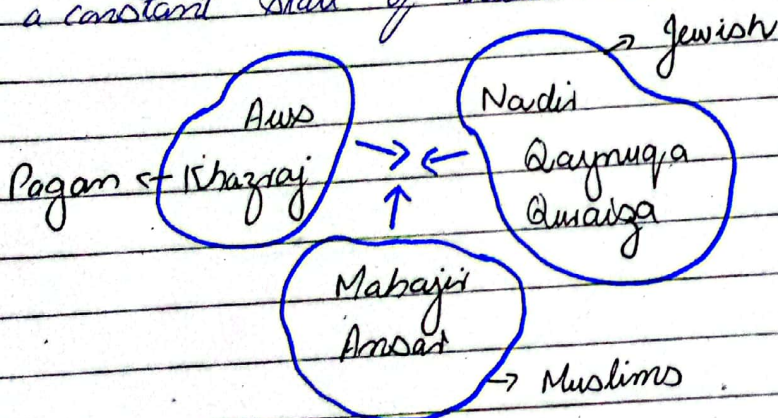 a constant state of
→ Jewish
Aws
Pagan ← Khazraj
Nadir
Qaynuqa
Quraiza
Mahajir
Ansar
→ Muslims